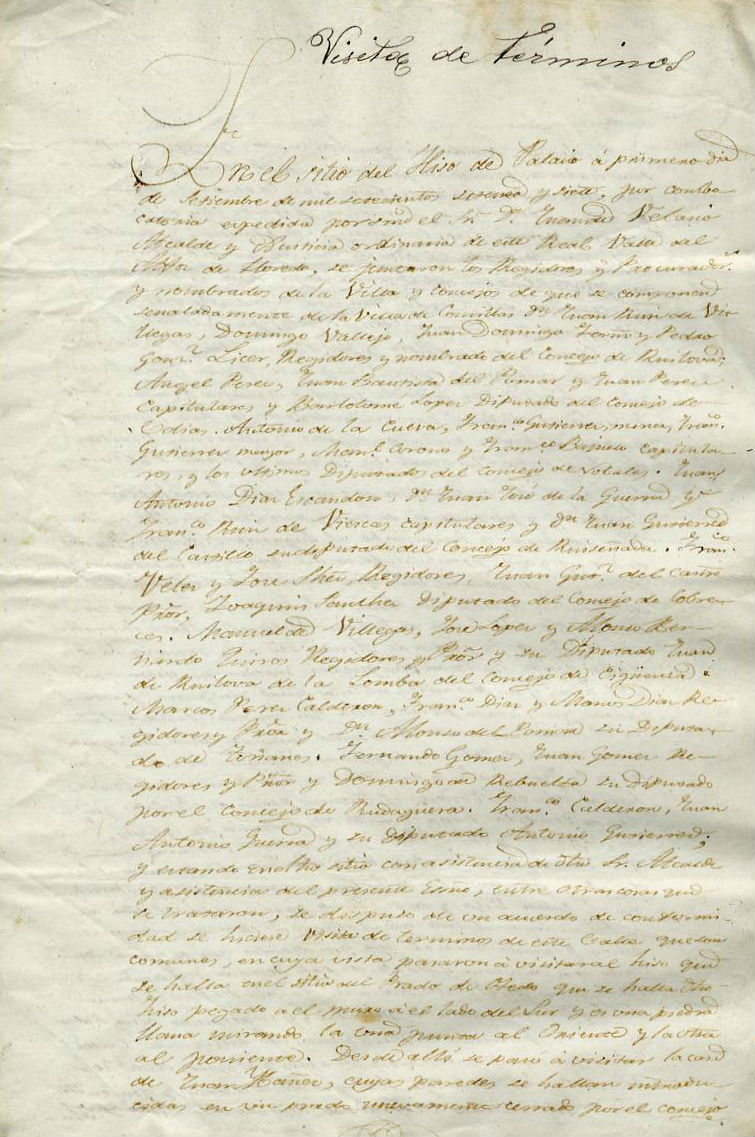 Visita de términos
En el sitio del Hiso de Palacio á primero dia
de Setiembre de mil setecientos sesenta y siete, por combo-
catoria expedida por smd el Sr. Dn. Juan de Velasco
Alcalde y Justicia ordinaria de este Real Valle del
Alfoz de Lloredo, se juntaron los Regidores y Procurador.s
y nombrados de la Villa y Concejos de que se compone
señaladamente de la Villa de Comillas Dn. Juan Ruiz de Vi-
llegas, Domingo Vallejo, Juan Domingo y Pedro
Gonz.z Licer, Regidores y nombrado del Concejo de Ruilova;
Angel Perez, Juan Bautista del Pomar y Juan Perez
Capitulares y Bartolome Lopez Diputado del Concejo de
Udias. Antonio de la Cueva, Fran.co Gutierrez menor, Fran.co
Gutierrez mayor, Man.l Corono y Fran.co capitula-
res, y los ultimos Diputados del Concejo de Novales. Juan
Antonio Diaz Escandon, Dn. Juan José de la Guerra y
Fran.co Ruiz de Viescas Capitulares y Dn. Juan Gutierrez
del Castillo su diputado del Concejo de Ruiseñada. Fran.co
Velez y Jose Regidores, Juan Gu.z del Castro
Pror, Joaquin Sanchez Diputado del Concejo de Cobre-
ces. Manuel de Villegas, Jose Lopez y Alonso Ber-
nardo Quiros Regidores y Pror y su Diputado Juan
de Ruilova de la Lomba del Concejo de Cigüenza.
Marcos Perez Calderon, Fran.co Diaz y Marcos Diaz Re-
gidores y Pror y Dn. Alonso del Pomar su Diputa-
do de Toñanes. Fernando Gomez, Juan Gomez Re-
gidores y Pror y Domingo de Rebuelta su Diputado
por el Concejo de Rudaguera. Fran.co Calderon, Juan
Antonio Guerra y su Diputado Antonio Gutierrez;
y estando en dho sitio con asistencia de dho Sr. Alcalde
y asistencia del presente Esno, entre otras cosas que
se trataron, se dispuso de un acuerdo de conformi-
dad se hiciese visita de terminos de este Valle que son
comunes, en cuya vista pasaron á visitar al hiso que
se halla en el sitio del Prado de Ozedo que se halla dho
hiso pegado a el muro á el lado del Sur y es una piedra
llana mirando la una punta al Oriente y la otra
al poniente. Desde allí se pasó á visitar la casa
de Juan Ibañez, cuyas paredes se hallan introdu-
cidas en un prado nuevamente cerrado por el concejo